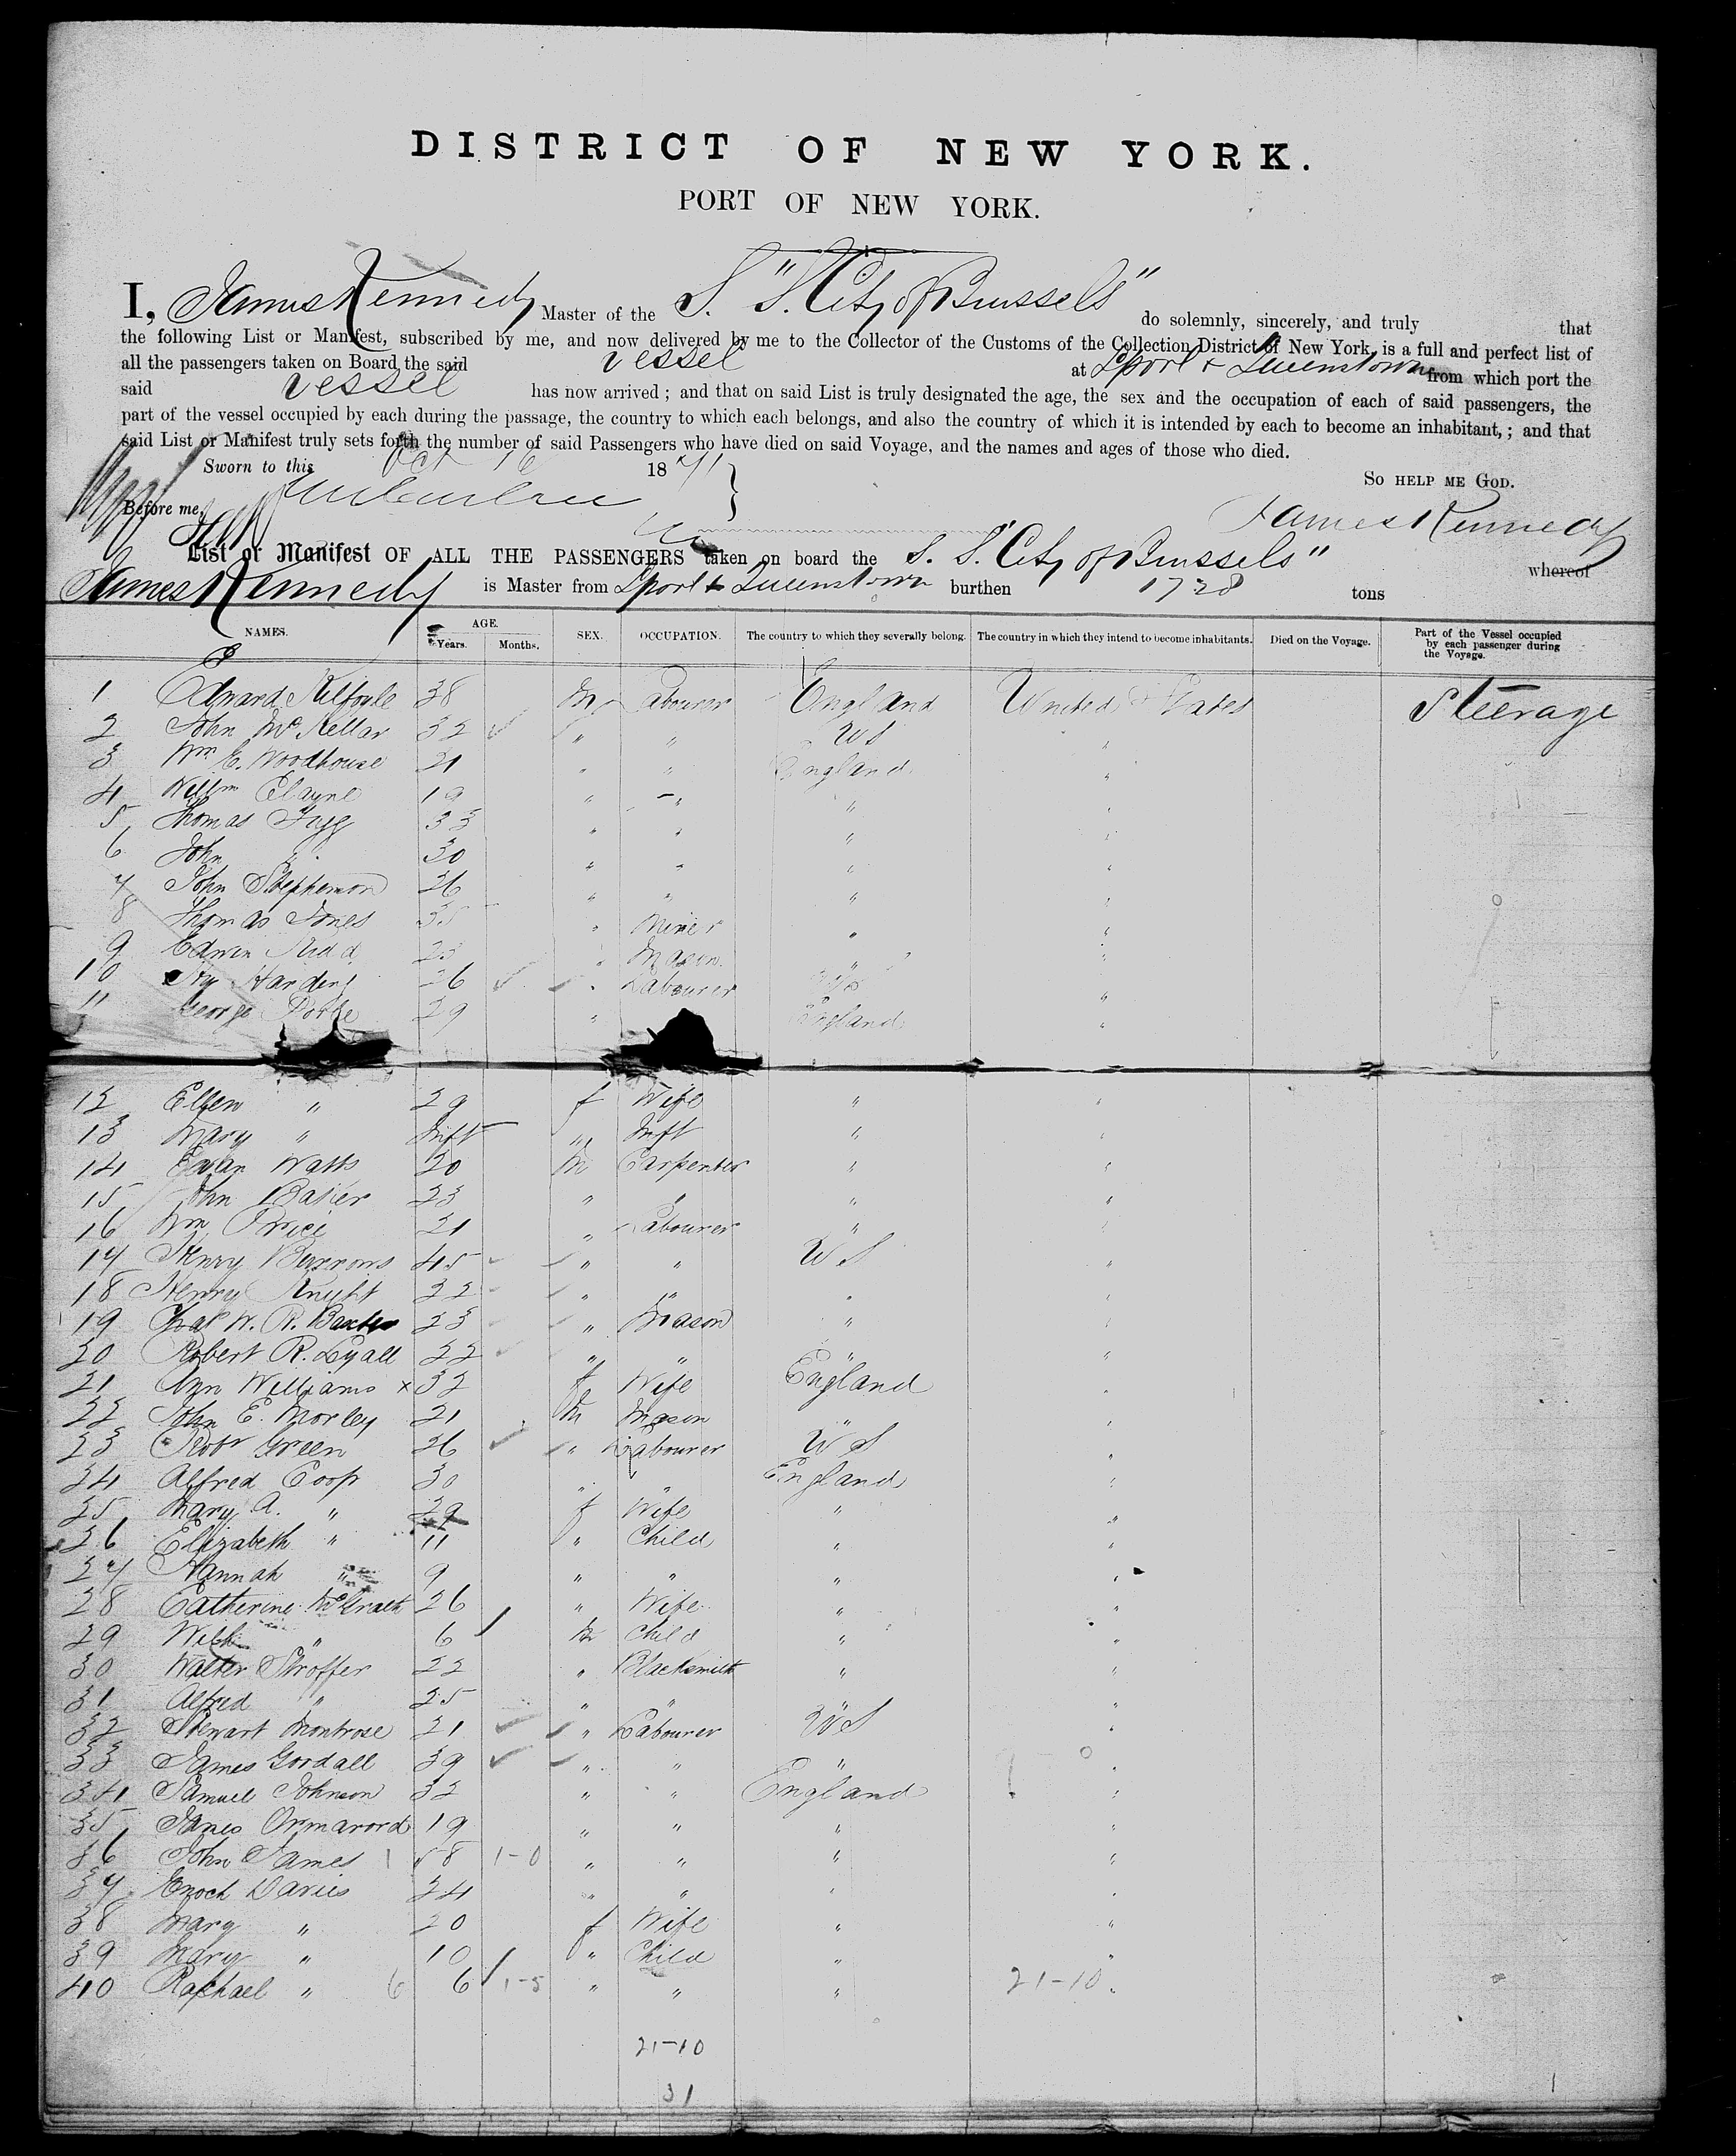 DISTRICT OF NEW YORK.
PORT OF NEW YORK.
I, James Kennedy Master of the S. "S. City of Brussels" do solemnly, sincerely, and truly that
the following List or Manifest, subscribed by me, and now delivered by me to the Collector of the Customs of the Collection District of New York, is a full and perfect list of
all the passengers taken on Board the said vessel at Lpool & Queenstown from which port the
said vessel has now arrived ; and that on said List is truly designated the age, the sex and the occupation of each of said passengers, the
part of the vessel occupied by each during the passage, the country to which each belongs, and also the country of which it is intended by each to become an inhabitant, ; and that
said List or Manifest truly sets forth the number of said Passengers who have died on said Voyage, and the names and ages of those who died.
Sworn to this Oct 16 1871
So HELP ME GOD.
Before me,
James Kennedy
List or Manifest OF ALL THE PASSENGERS taken on board the S. "S. City of Brussels" whereof
James Kennedy is Master from Lpool & Queenstown burthen 1728 tons
NAMES. AGE. Years. Months. SEX. OCCUPATION. The country to which they severally belong. The country in which they intend to become inhabitants. Died on the Voyage. Part of the Vessel occupied by each passenger during the Voyage.
1 Edward Kilfoyle 38 M Labourer England United States Steerage
2 John McKellar 32 " " US "
3 Wm. E. Woodhouse 21 " " England "
4 Willm Clayne 19 " " " "
5 Thomas Fugg 33 " " " "
6 John " 30 " " " "
7 John Stephenson 26 " " " "
8 Thomas Jones 35 " Miner " "
9 Edwin Kidd 23 " Mason " "
10 Hy Harding 26 " Labourer US "
11 George 29 " England "
12 Ellen " 29 f Wife " "
13 Mary " Inft " Inft " "
14 Evan Watts 20 M Carpenter " "
15 John Baker 23 " " " "
16 Wm Price 21 " Labourer " "
17 Henry Burrows 45 " " US "
18 Henry Knight 22 " " " "
19 Chas W. R. Baxter 23 " Mason " "
20 Robert R. Lyall 22 " " " "
21 Ann Williams x 32 f Wife England "
22 John E. Morley 21 M Mason " "
23 Robt Green 26 " Labourer US "
24 Alfred Coop 30 " " England "
25 Mary A. " 29 f Wife " "
26 Elizabeth " 11 " Child " "
27 Hannah " 9 " " " "
28 Catherine McGrath 26 " Wife " "
29 Will " 6 M Child " "
30 Walter Stroffer 22 " Blacksmith " "
31 Alfred " 25 " " " "
32 Stewart Montrose 21 " Labourer US "
33 James Goodall 39 " " " "
34 Samuel Johnson 32 " " England "
35 James Ormarord 19 " " " "
36 John James 58 1-0 " " " "
37 Enoch Davies 24 " " " "
38 Mary " 20 f Wife " "
39 Mary " 10 " Child " "
40 Raphael " 6 6 1-5 " " " 21-10 "
21-10
31